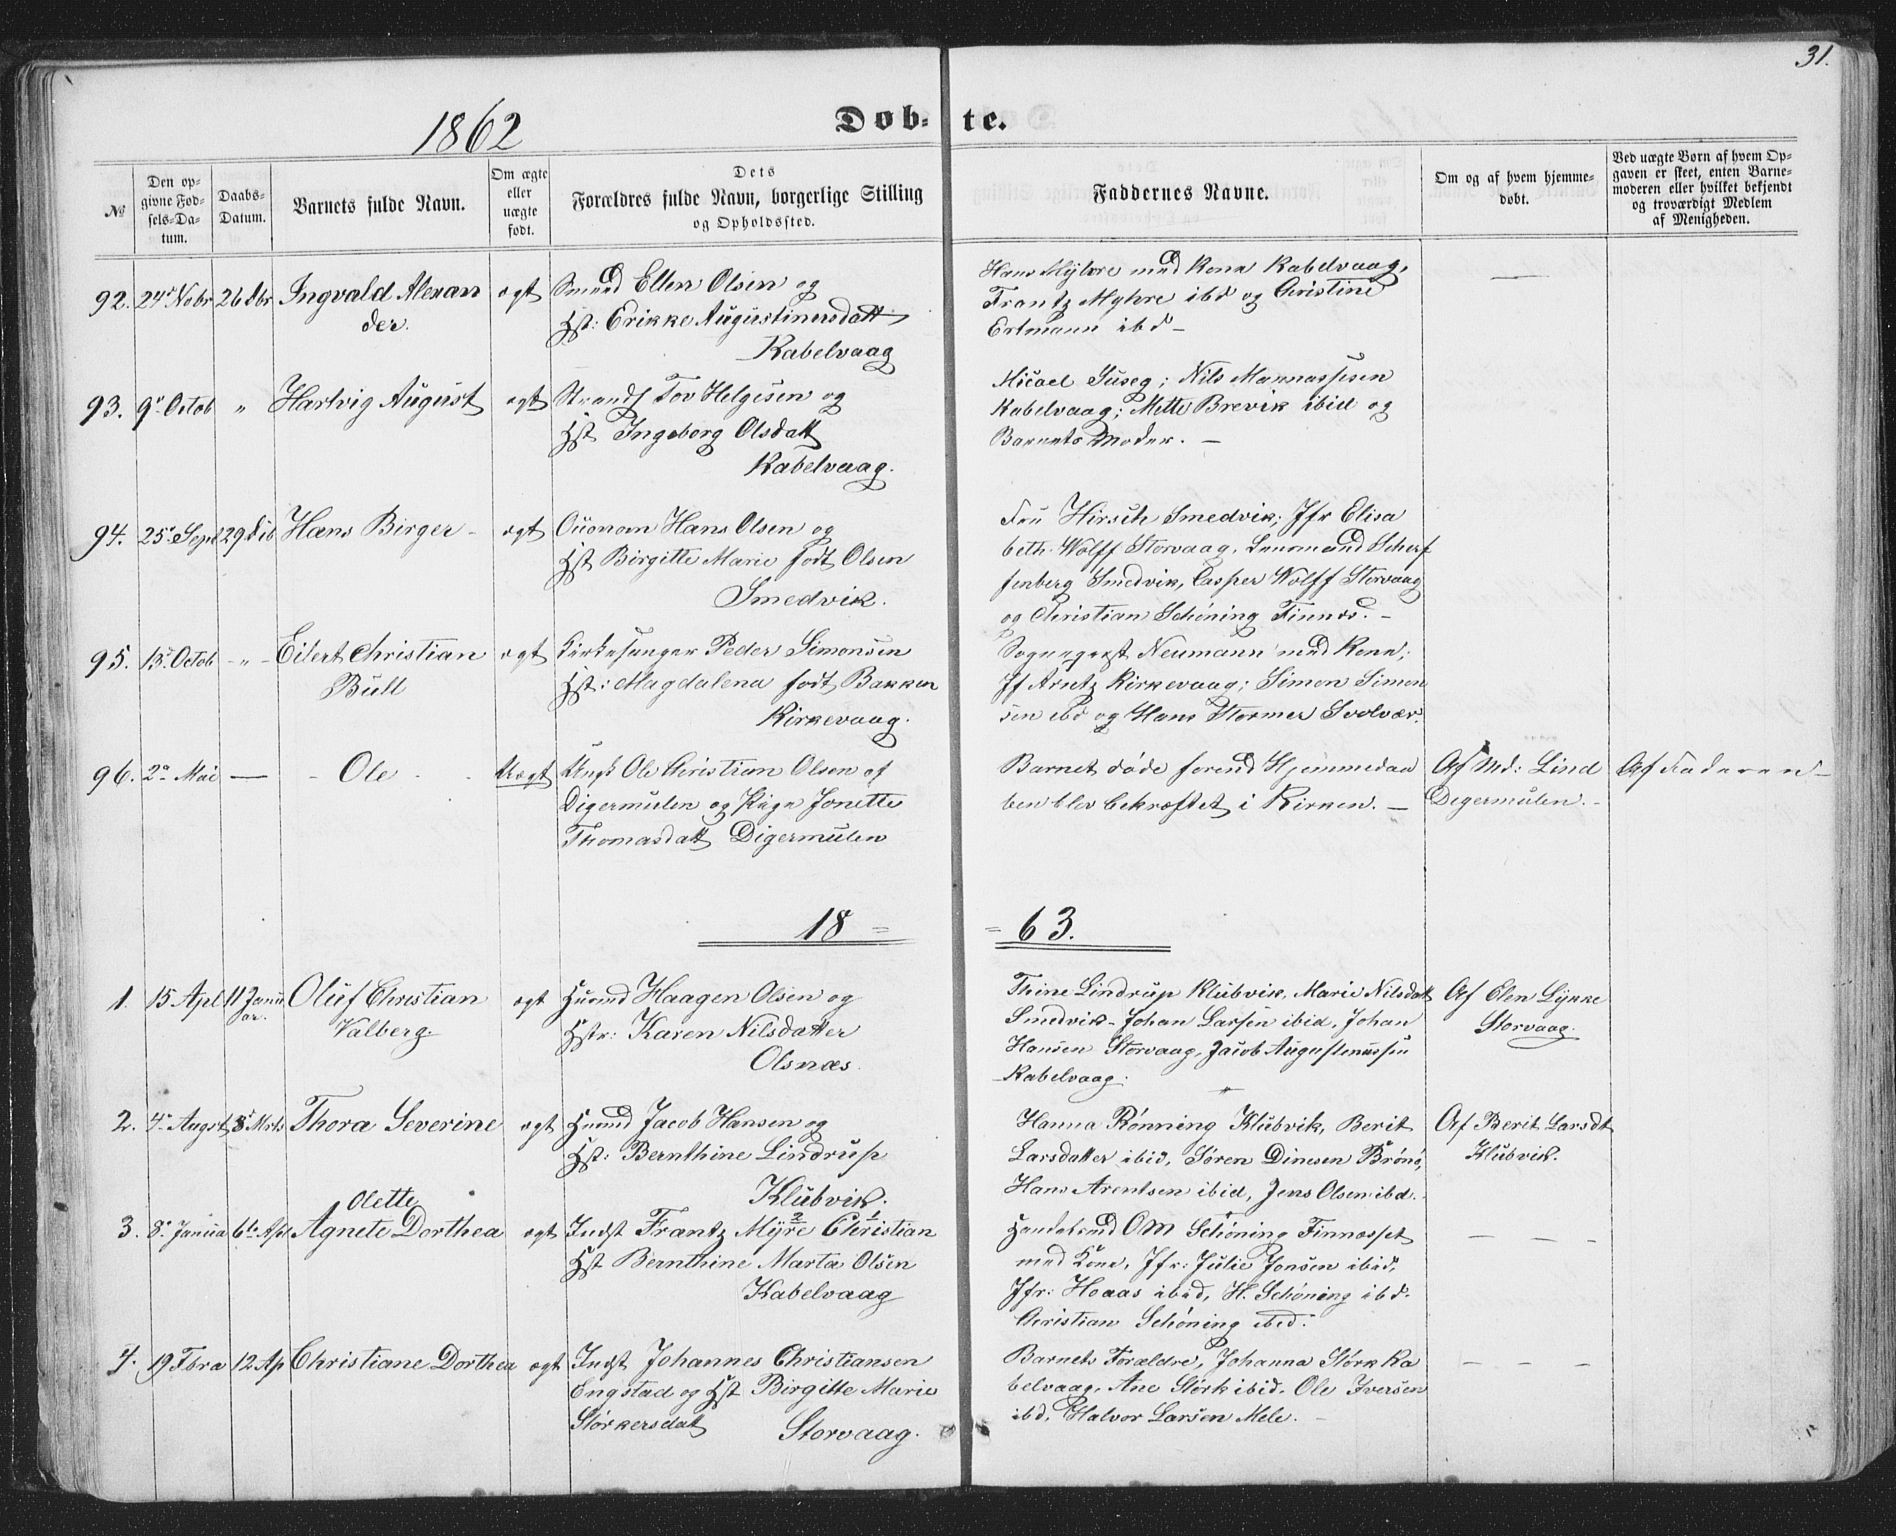 31.
1862
Døb-te.
№
Den op-
givne Fød-
sels-Da-
tum.
Daabs-
Datum.
Barnets fulde Navn.
Om ægte
eller
uægte
født.
Dets
Forældres fulde Navn, borgerlige Stilling
og Opholdssted.
Faddernes Navne.
Om og af hvem hjemme-
døbt.
Ved uægte Børn af hvem Op-
gaven er skeet, enten Barne-
moderen eller hvilket bekjendt
og troværdigt Medlem
af Menigheden.
92. 24de Nobr 26 Dbr Ingvald Alexan
der.
ægt
Smed Ellen Olsen og
Hst: Erikke Augustinusdatt
Kabelvaag
Hans Myhre med Kone Kabelvaag,
Frantz Myhre ibd og Christine
Ertmann ibd –
—
93. 9de Octob " Hartvig August
ægt
Strands Tov Helgesen og
Hst Ingeborg Olsdatt
Kabelvaag.
Micael Juseg; Nils Mannassesen
Kabelvaag; Mette Brevik ibid og
Barnets Moder. –
94. 25de Sept 29 Dcb Hans Birger –
ægt
Hans Olsen og
Hst Birgitte Marie født Olsen
Smedvik.
Fru Hirsch Smedvik; Jfr Elisa
beth Wolff Storvaag, Lensmand Scherf
fenberg Smedvik, Casper Wolff Storvaag
og Christian Schøning Finnæs. –
95. 13de Octob – " – Eilert Christian
Bull
ægt
Kirkesanger Peder Simonsen
Hst: Magdalena født Bakken
Kirkevaag.
Sogneprest Neumann med Kone;
Jf Arntz Kirkevaag; Simon Simon
sen ibd og Hans Stormer Svolvær.
96. 2den Mai — – Ole – –
Uægt
Ungk Ole Christian Olsen af
Digermulen og Pige Jonette
Thomasdatt Digermulen
Barnet døde forend Hjemmedaa
ben blev bekræftet i Kirken. —
Af Md: Lind
Degermulen. –
Af Faderen –
18 = = 63.
1. 15 Apl 11 Janu
ar.
Oluf Christian
Valberg
ægt
Husmd Haagen Olsen og
Hstr: Karen Nilsdatter
Olsnæs.
Thine Lindrup Klubvik, Marie Nilsdatt
Smedvik – Johan Larsen ibid, Johan
Hansen Storvaag, Jacob Augustinussen
Kabelvaag.
Af Elen Lykke
Storvaag.
2. 4de Augst 8de Mrts Thora Severine
ægt
Husmd Jacob Hansen og
Hst: Bernthine Lindrup
Klubvik.
Hanna Rønning Klubvik, Berit
Larsdatter ibid, Søren Dinesen Brønø,
Hans Arentsen ibid, Jens Olsen ibd.
Af Berit Larsdt
Klubvik.
Olette
3. 8de Janua 6te Apl Agnete Dorthea
ægt
Indst Frantz Myre 2 Christian 1
Hst Bernthine Marta Olsen
Kabelvaag
Handelsmd OM Schøning Finnæsset
med Kone, Jfr: Julie Jonsen ibid,
Jfr: Haaas ibid, H. Schøning ibd.
Christian Schøning ibid.
– – –
4. 19 Fbra 12 Ap Christiane Dorthea
ægt
Indst Johannes Christiansen
Engstad og Hst Birgitte Marie
Størkersdatt
Storvaag.
Barnets Forældre, Johanna Størk Ka
belvaag, Ane Størk ibid. Ole Iversen
ibd, Halvor Larsen Mele. –
– – –